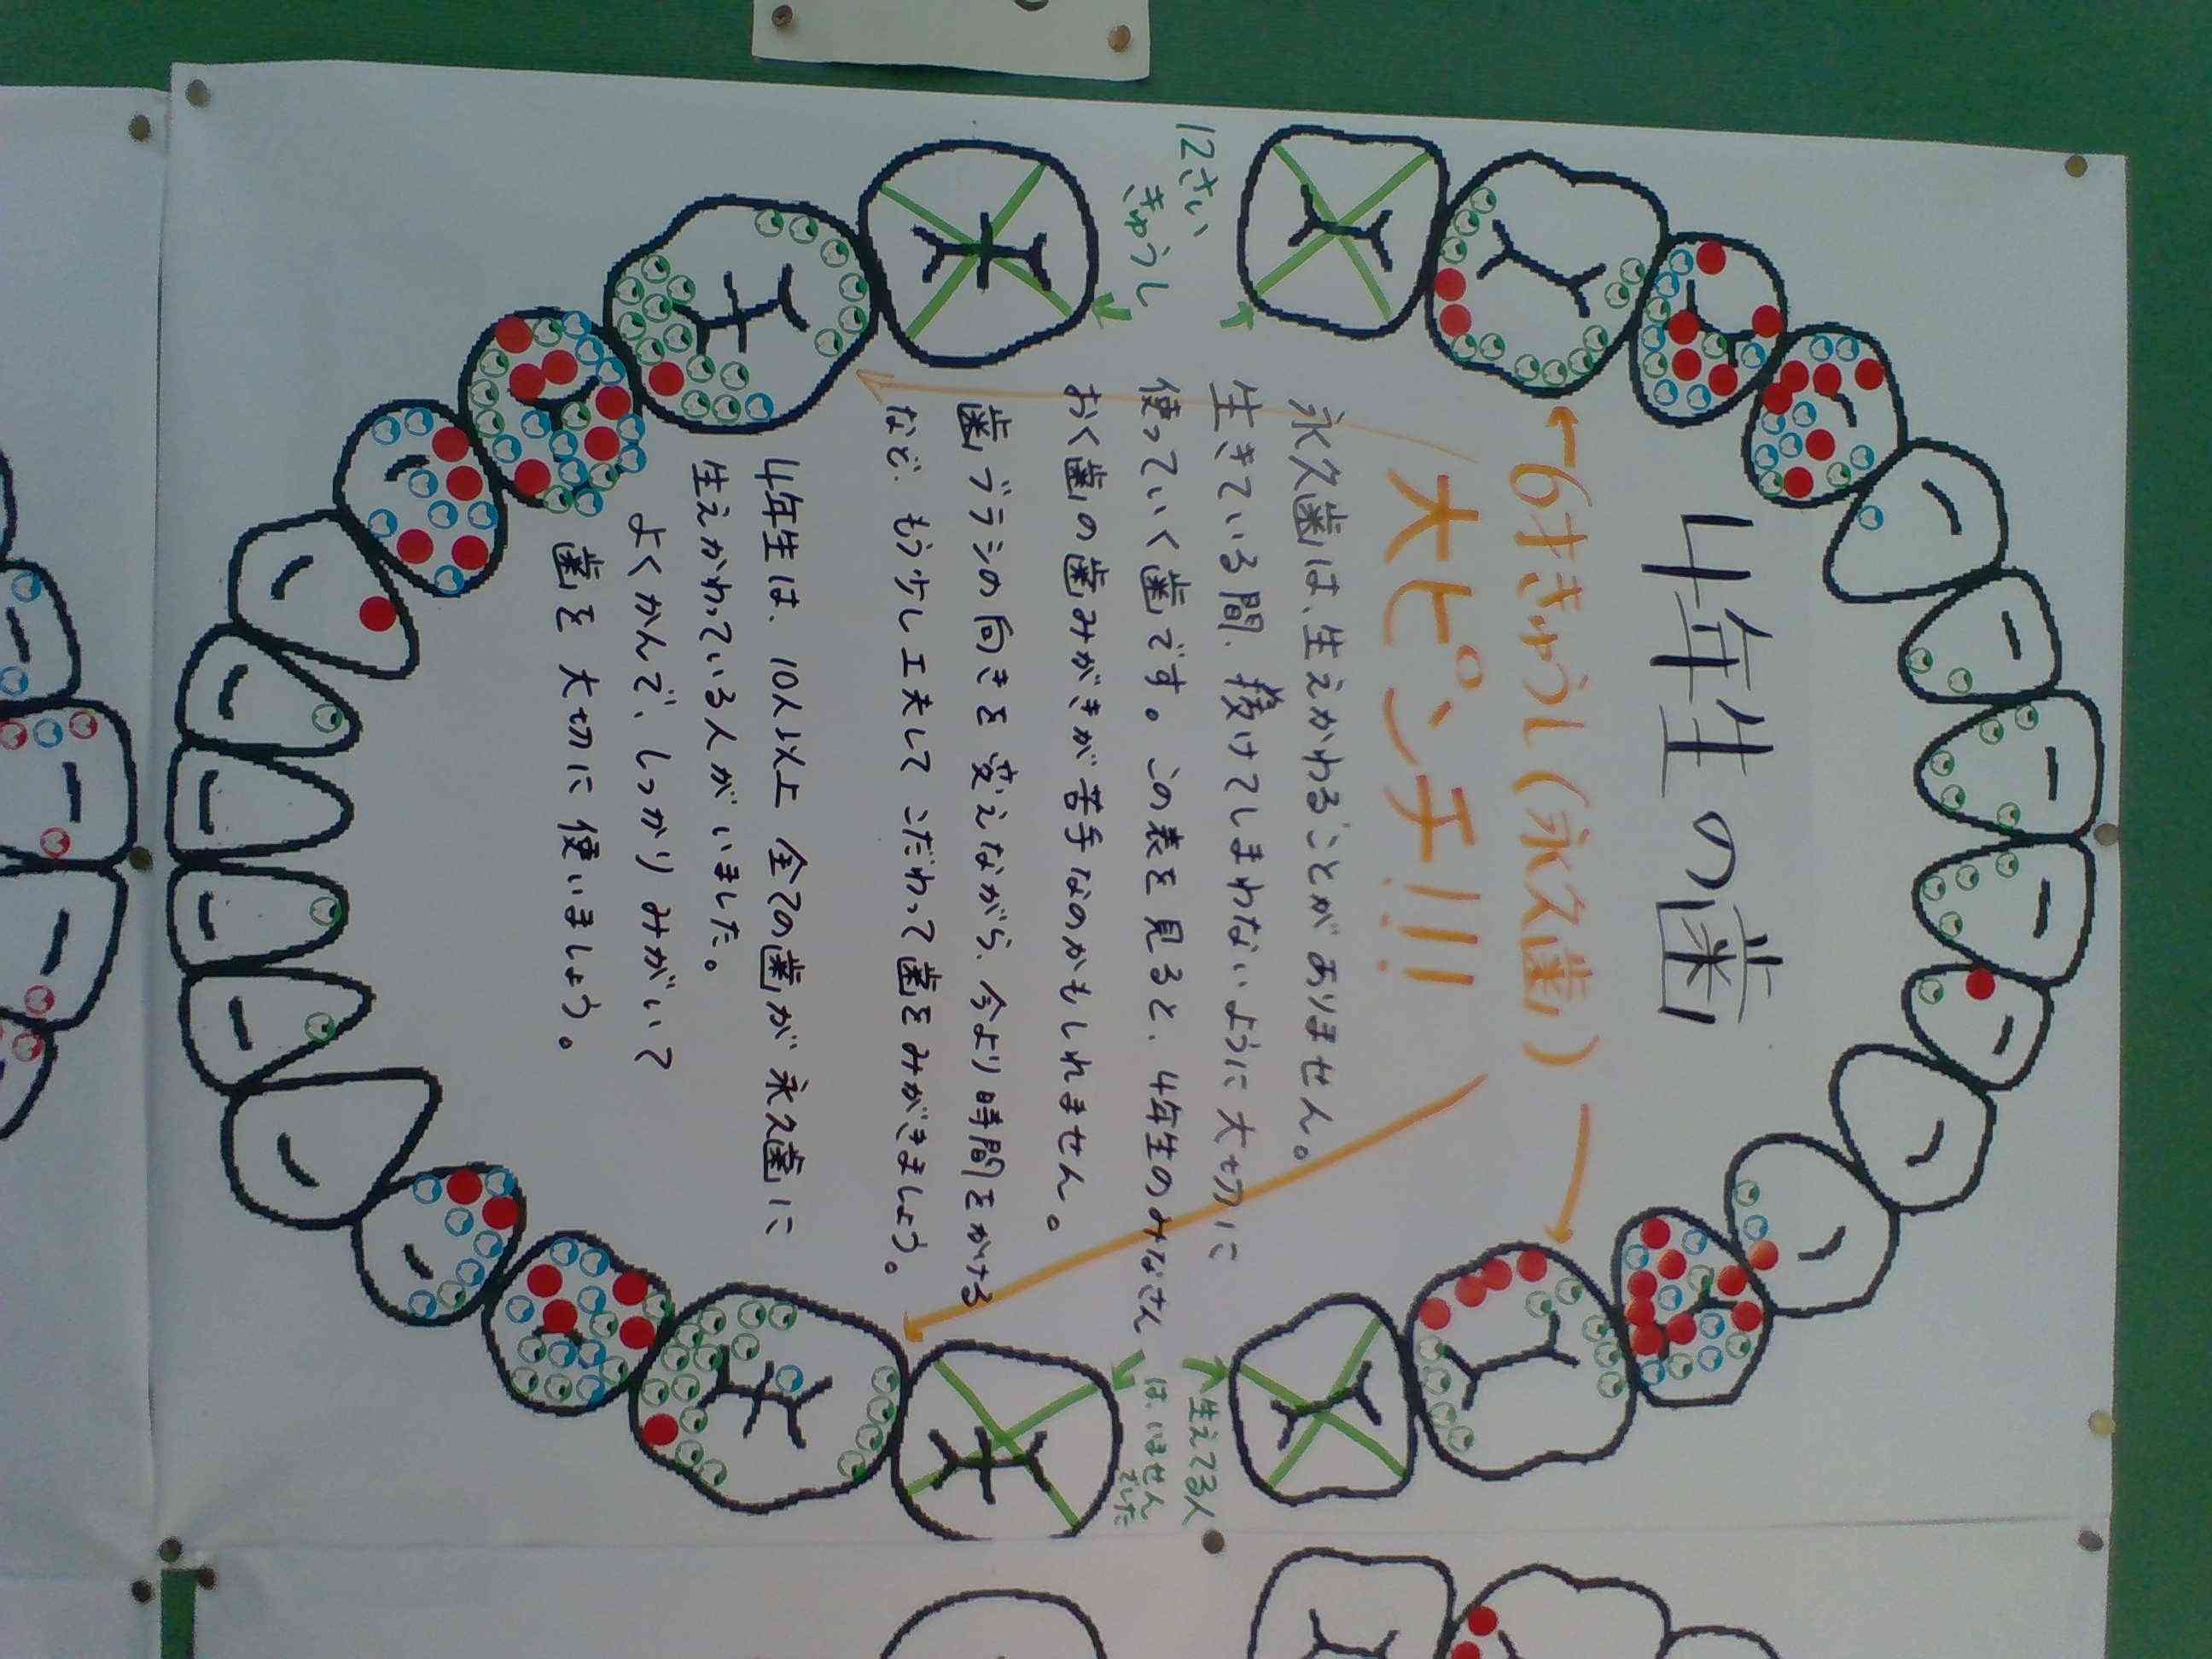 4年生の歯
6才きゅうし(永久歯)
大ピンチ!!!
永久歯は、生えかわることがありません。
生きている間、抜けてしまわないように大切に
使っていく歯です。この表を見ると、4年生のみなさん
おく歯の歯みがきが苦手なのかもしれません。
歯ブラシの向きを変えながら、今より時間をかける
など、もう少し工夫してこだわって歯をみがきましょう。
4年生は、10人以上全ての歯が永久歯に
生えかわっている人がいました。
よくかんで、しっかりみがいて
歯を大切に使いましょう。
12さい
きゅうし
生えてる人
は、いません
でした